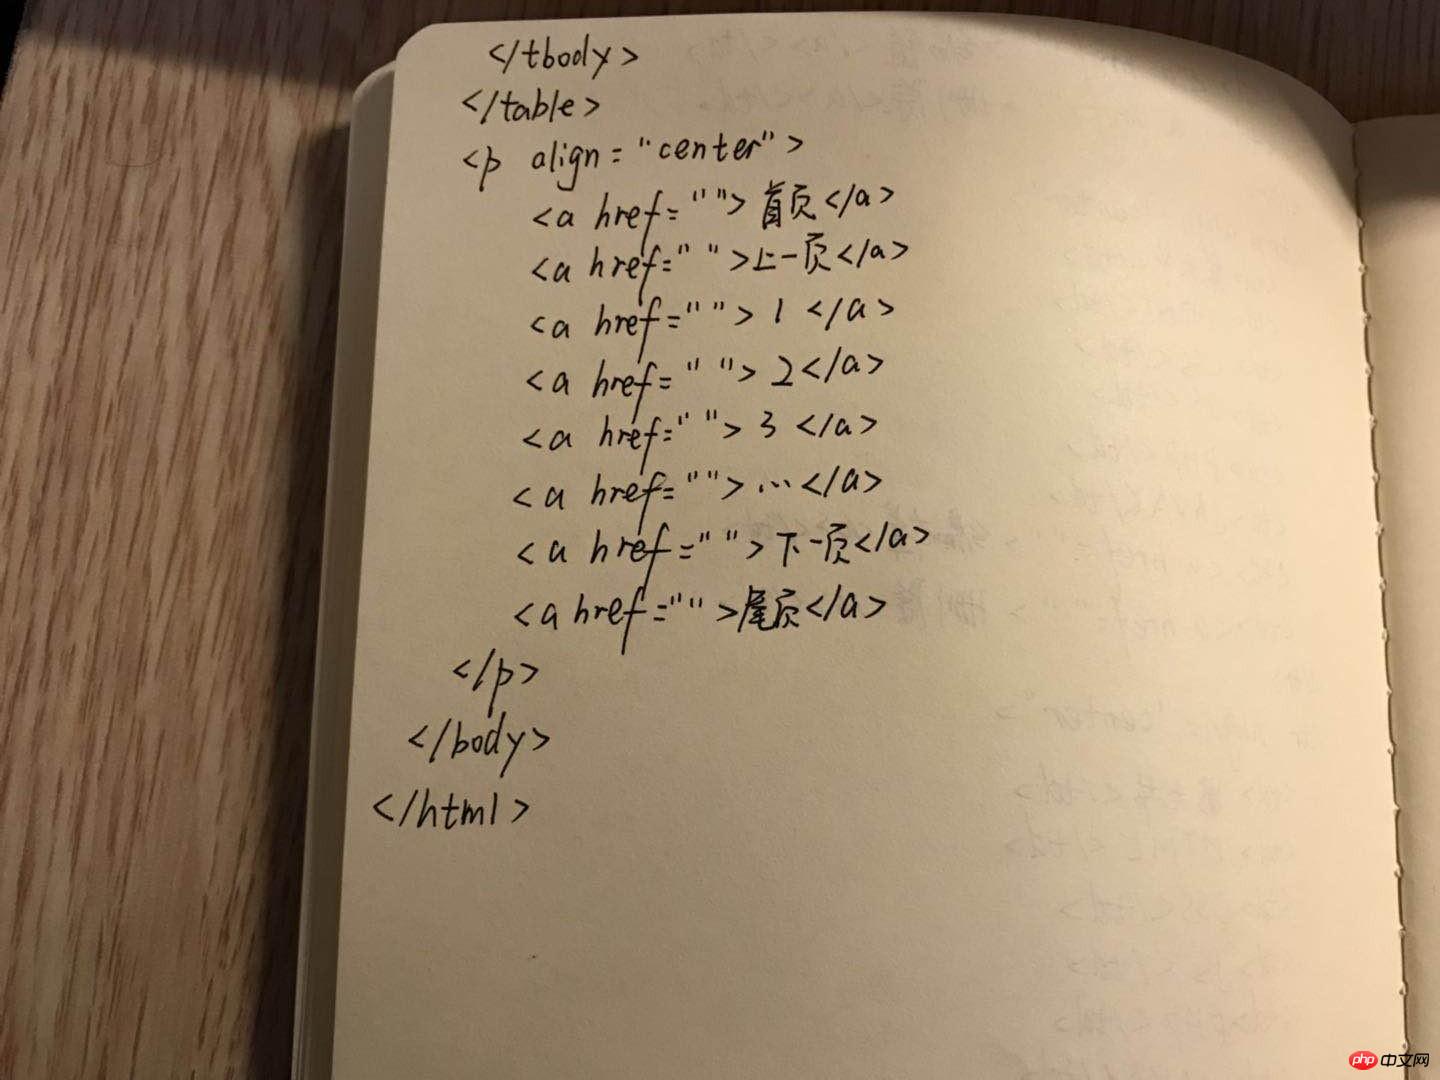 </tbody>
</table>
<p align="center">
<a href="">首页</a>
<a href=" ">上一页</a>
<a href=" ">1 </a>
<a href=" ">2</a>
<a href=" ">3 </a>
<a href="">...</a>
<a href=" ">下一页</a>
<a href="">尾页</a>
</p>
</body>
</html>
php 中文网